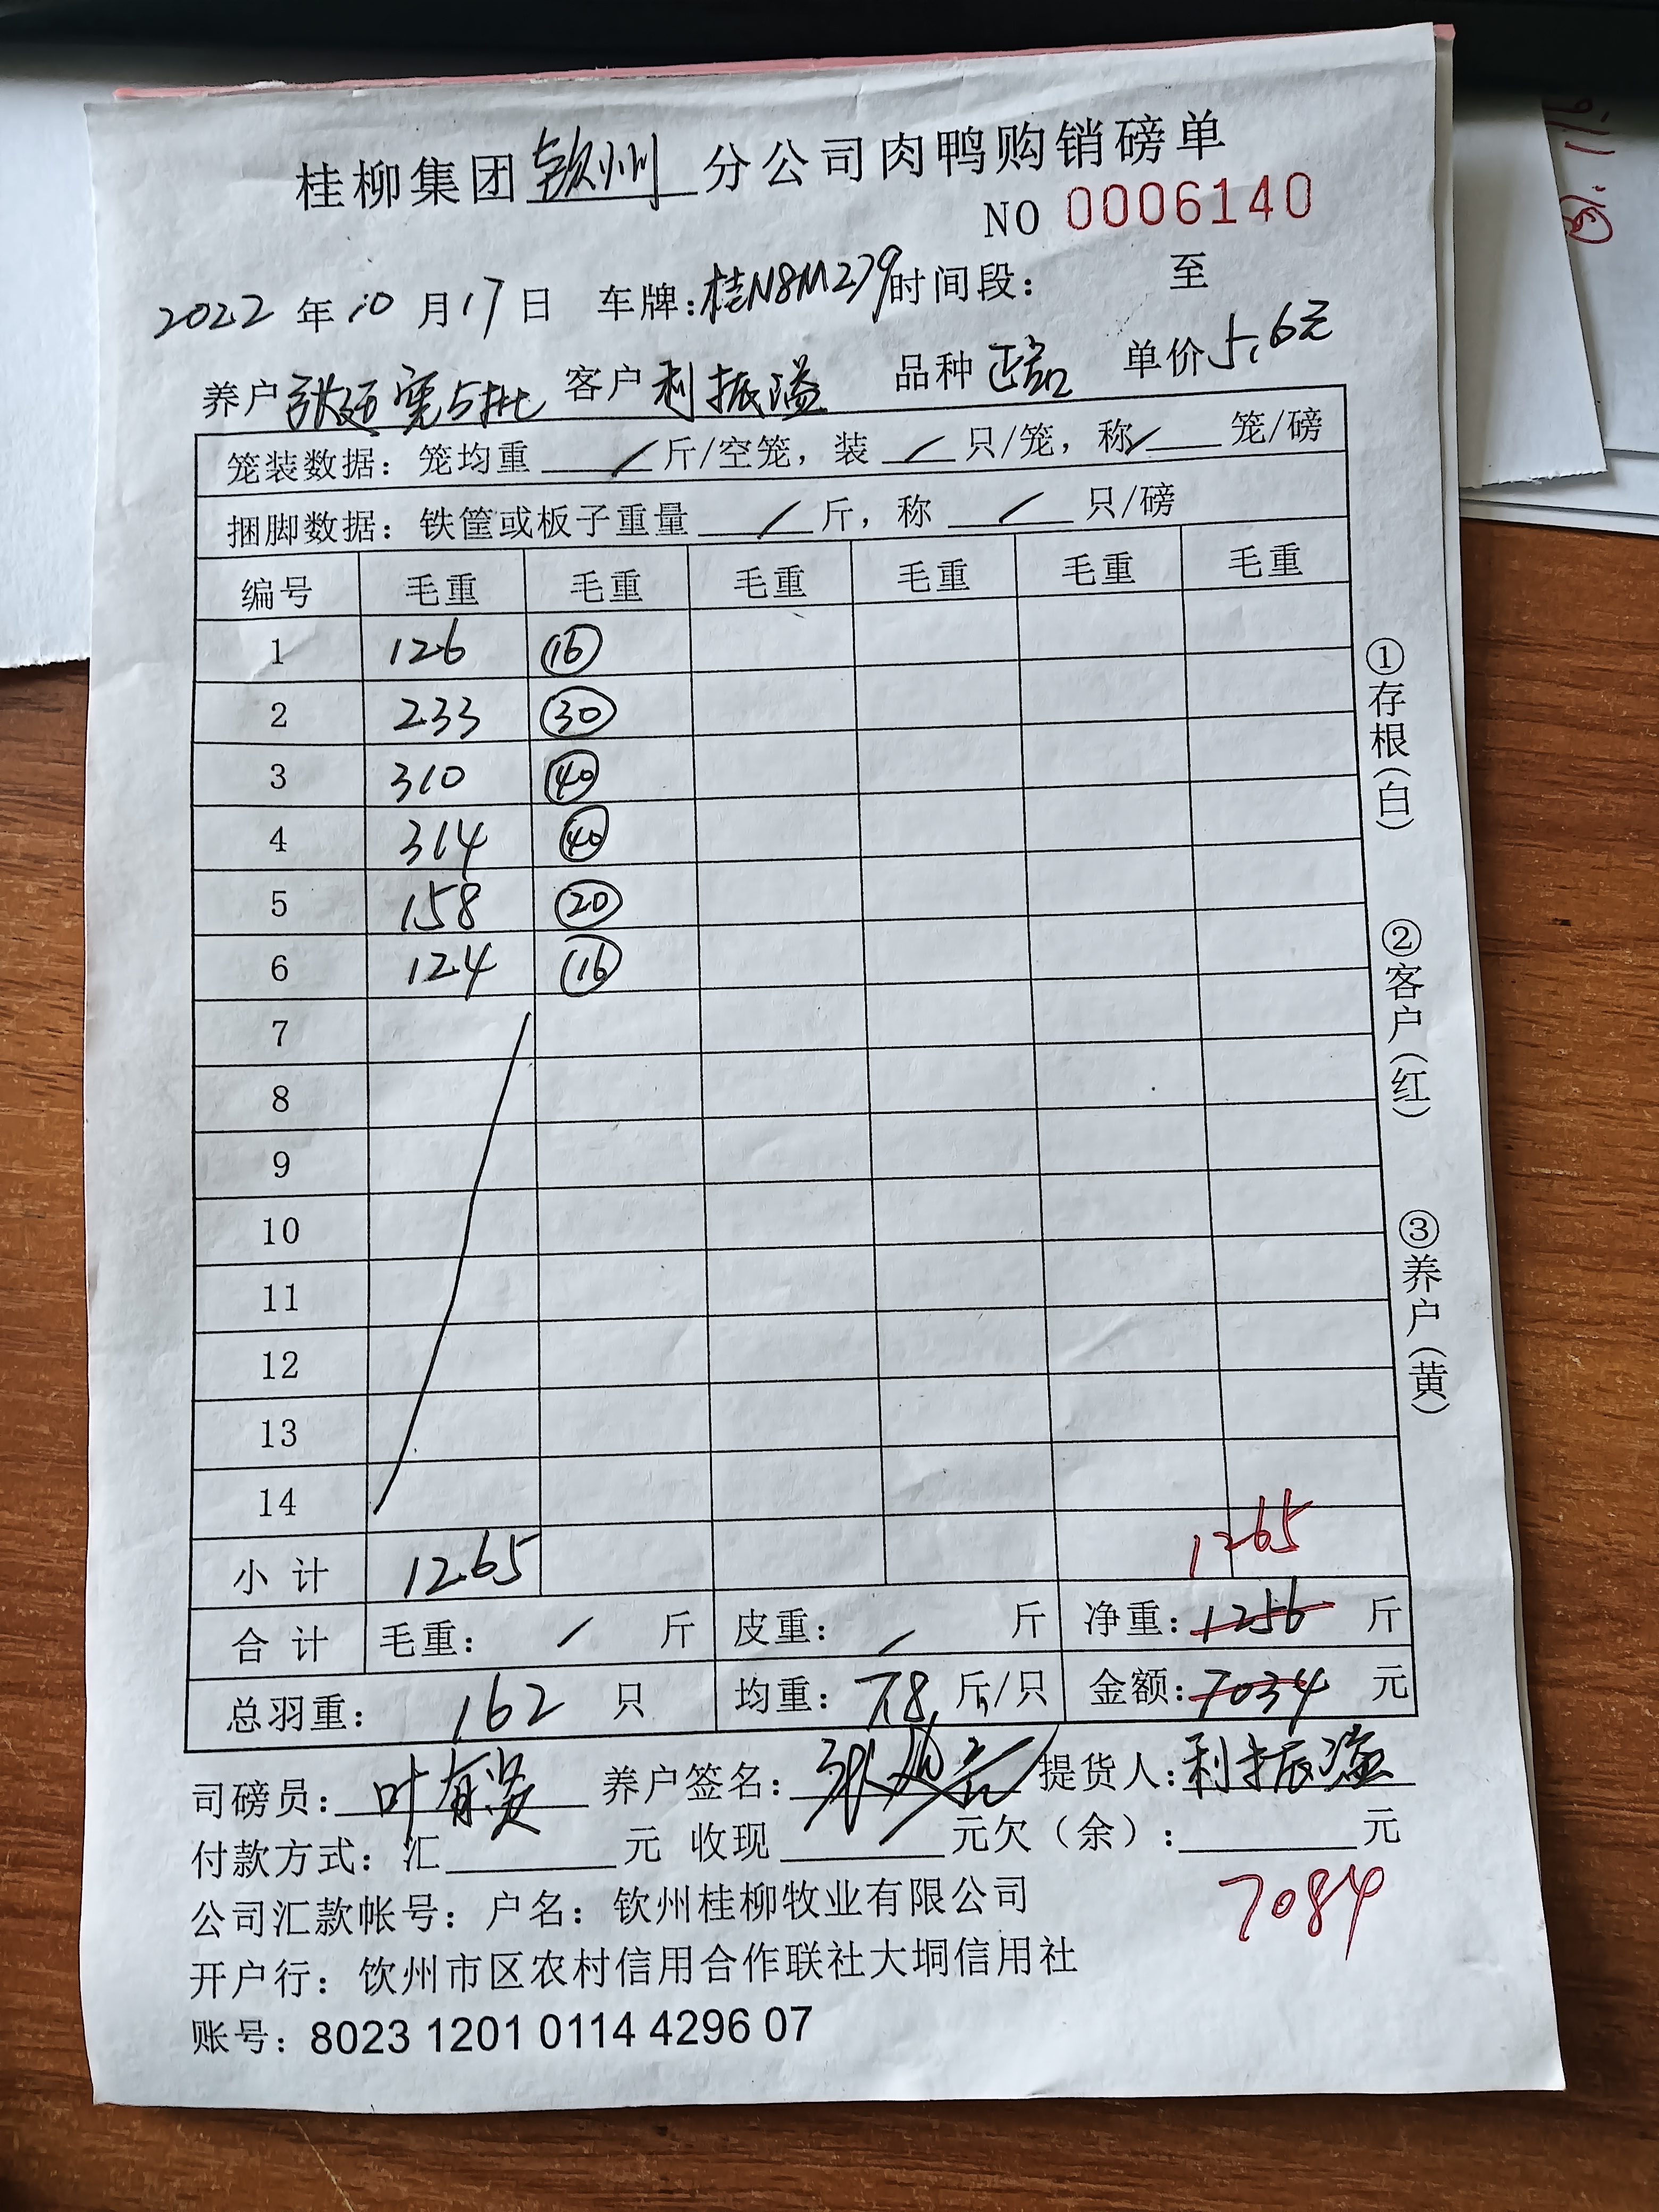 桂柳集团钦州分公司肉鸭购销磅单
NO 0006140
2022年10月17日 车牌:桂N8M279时间段: 至
养户张廷宽5批 客户利振溢 品种正品 单价5.6元
笼装数据: 笼均重 / 斤/空笼, 装 / 只/笼, 称 / 笼/磅
捆脚数据: 铁筐或板子重量 / 斤, 称 / 只/磅
编号 毛重 毛重 毛重 毛重 毛重 毛重
1 126 ⑯
2 233 ㉚
3 310 ㊵
4 314 ㊵
5 158 ⑳
6 124 ⑯
7
8
9
10
11
12
13
14
小计 1265 1265
合计 毛重: / 斤 皮重: / 斤 净重:1256 斤
总羽重: 162 只 均重: 7.8 斤/只 金额:7034 元
司磅员: 叶有 养户签名: 张 提货人:利振溢
付款方式: 汇 元 收现 元欠(余): 元
7084
公司汇款帐号: 户名: 钦州桂柳牧业有限公司
开户行: 钦州市区农村信用合作联社大垌信用社
账号: 8023 1201 0114 4296 07
①存根(白)
②客户(红)
③养户(黄)